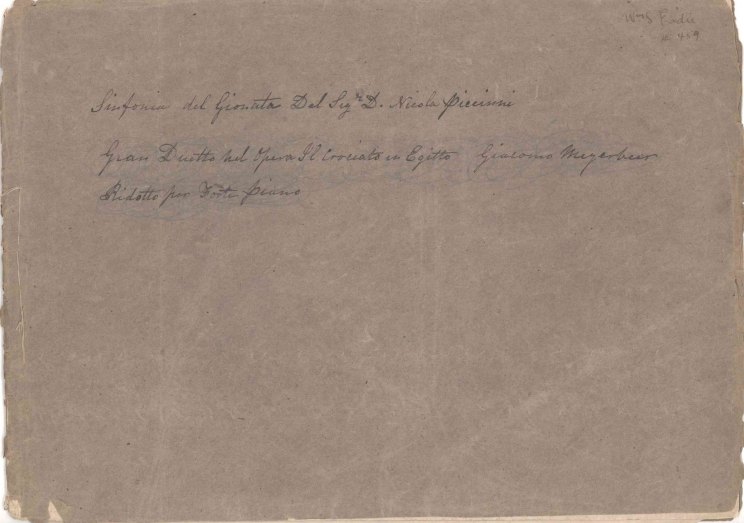 # 459
Sinfonia del Gionata Del Sigre D. Nicola Piccinni
Gran Duetto nel Opera Il Crociato in Egitto Giacomo Meyerbeer
Ridotto per Forte Piano